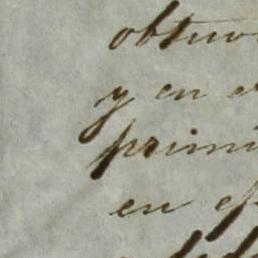 obtuvo
y en e
primi
en ef